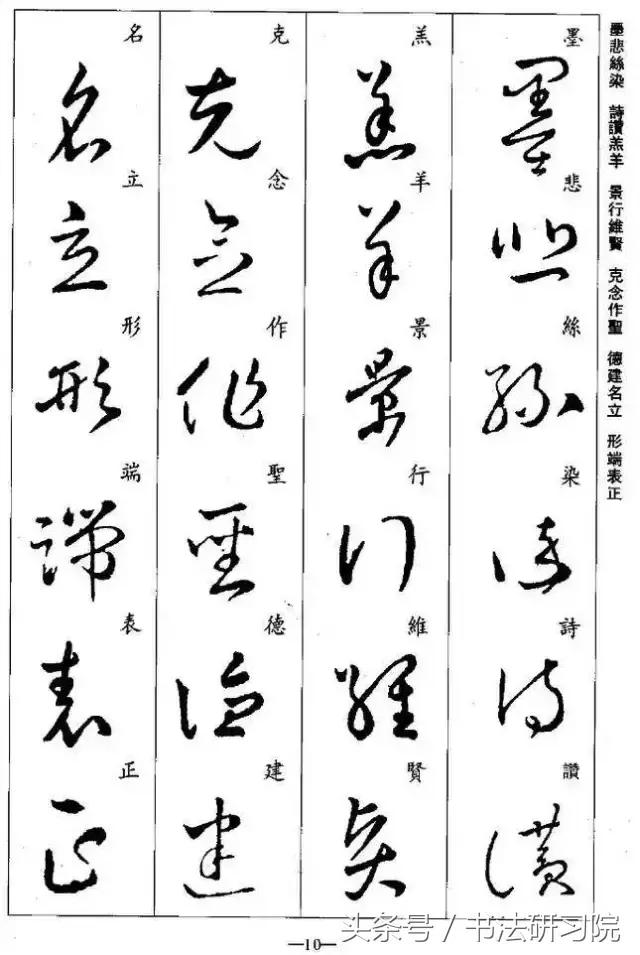 墨悲絲染 詩讚羔羊 景行維賢 克念作聖 德建名立 形端表正
墨悲絲染詩讚
羔羊景行維賢
克念作聖德建
名立形端表正
—10—
头条号 / 书法研习院